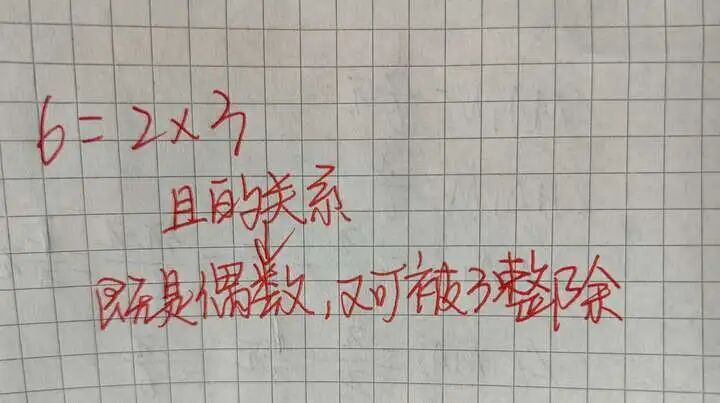 6=2×3
且的关系
既是偶数,又可被3整除